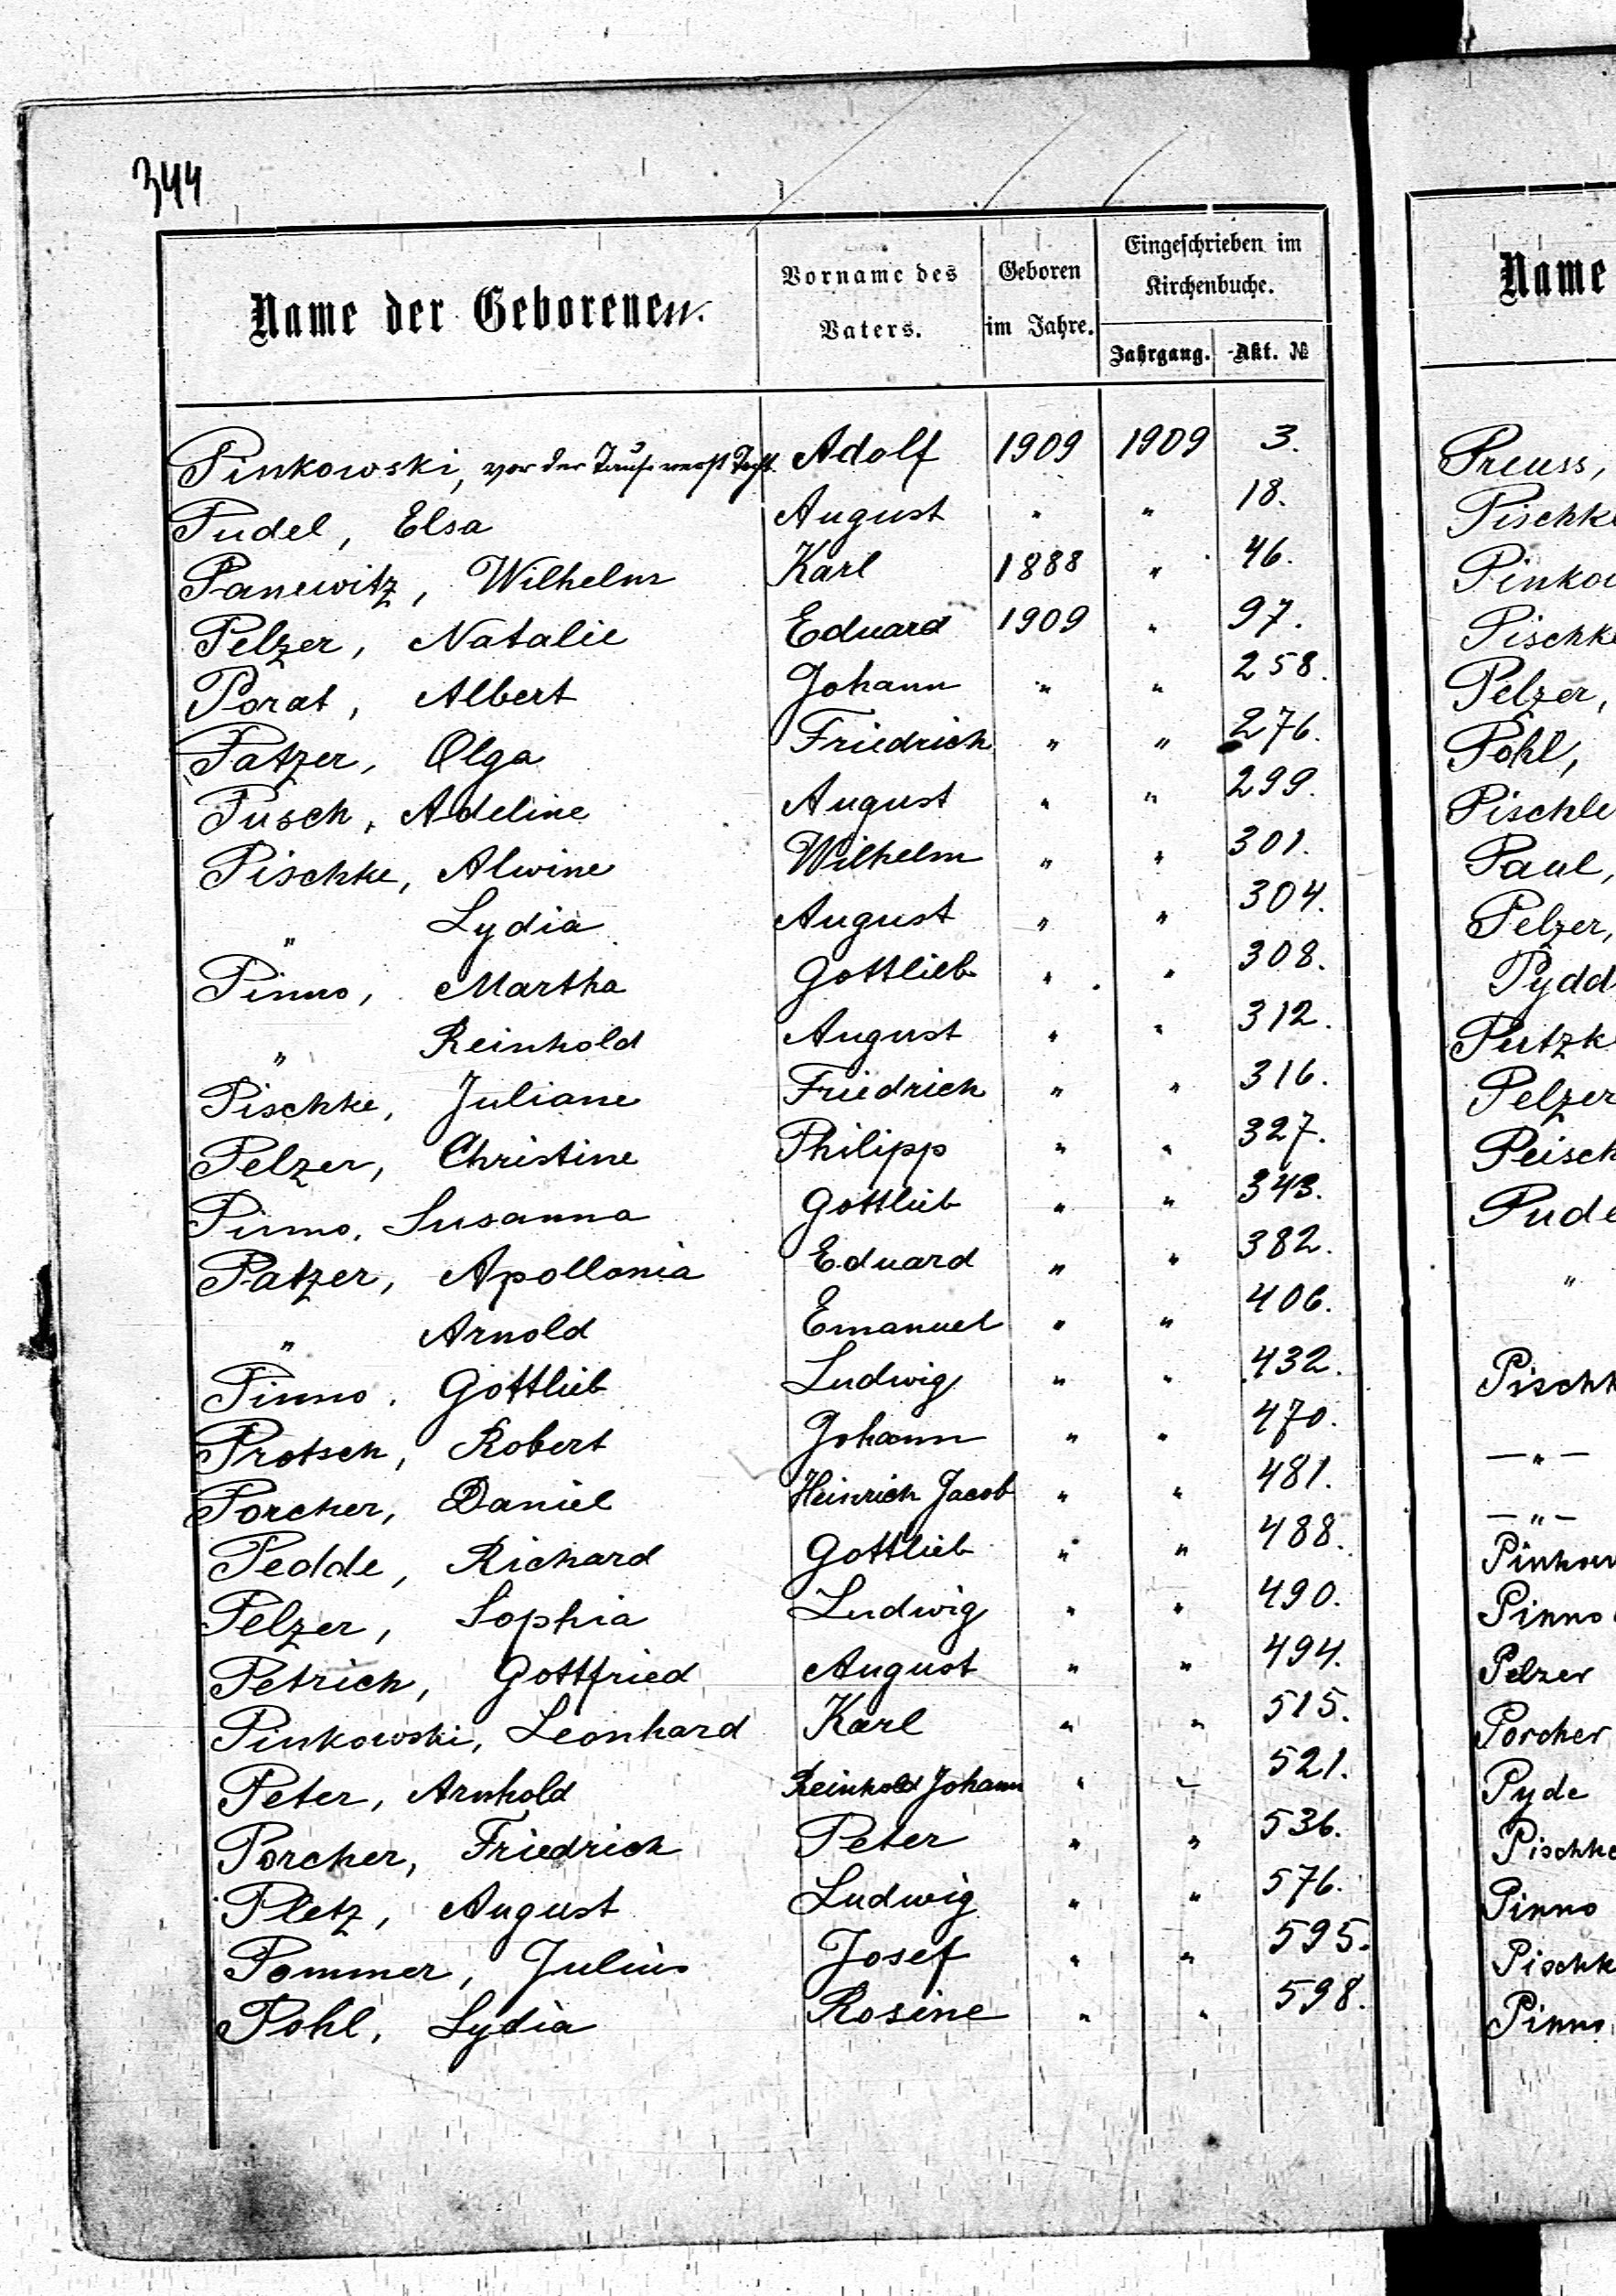 344
Name der Geborenen.
Vorname des Vaters.
Geboren im Jahre.
Eingeschrieben im Kirchenbuche.
Jahrgang. Akt. №
Pinkowski, vor der Taufe verst. Tocht. Adolf 1909 1909 3.
Pudel, Elsa August " " 18.
Panewitz, Wilhelm Karl 1888 " 46.
Pelzer, Natalie Eduard 1909 " 97.
Porat, Albert Johann " " 258.
Patzer, Olga Friedrich " " 276.
Pusch, Adeline August " " 299.
Pischke, Alwine Wilhelm " " 301.
" Lydia August " " 304.
Pinno, Martha Gottlieb " " 308.
" Reinhold August " " 312.
Pischke, Juliane Friedrich " " 316.
Pelzer, Christine Philipp " " 327.
Pinno, Susanna Gottlieb " " 343.
Patzer, Apollonia Eduard " " 382.
" Arnold Emanuel " " 406.
Pinno, Gottlieb Ludwig " " 432.
Protsch, Robert Johann " " 470.
Porcher, Daniel Heinrich Jacob " " 481.
Pedde, Richard Gottlieb " " 488.
Pelzer, Sophia Ludwig " " 490.
Petrich, Gottfried August " " 494.
Pinkowski, Leonhard Karl " " 515.
Peter, Arnhold Reinhold Johann " " 521.
Porcher, Friedrich Peter " " 536.
Pletz, August Ludwig " " 576.
Pommer, Julius Josef " " 595.
Pohl, Lydia Rosine " " 598.
Name
Preuss,
Pischke
Pinkow
Pischke
Pelzer,
Pohl,
Pischke
Paul,
Pelzer,
Pydd
Putzk
Pelzer
Peisch
Pude
"
Pischk
— " —
— " —
Pinkow
Pinno
Pelzer
Porcher
Pyde
Pischke
Pinno
Pischk
Pinno